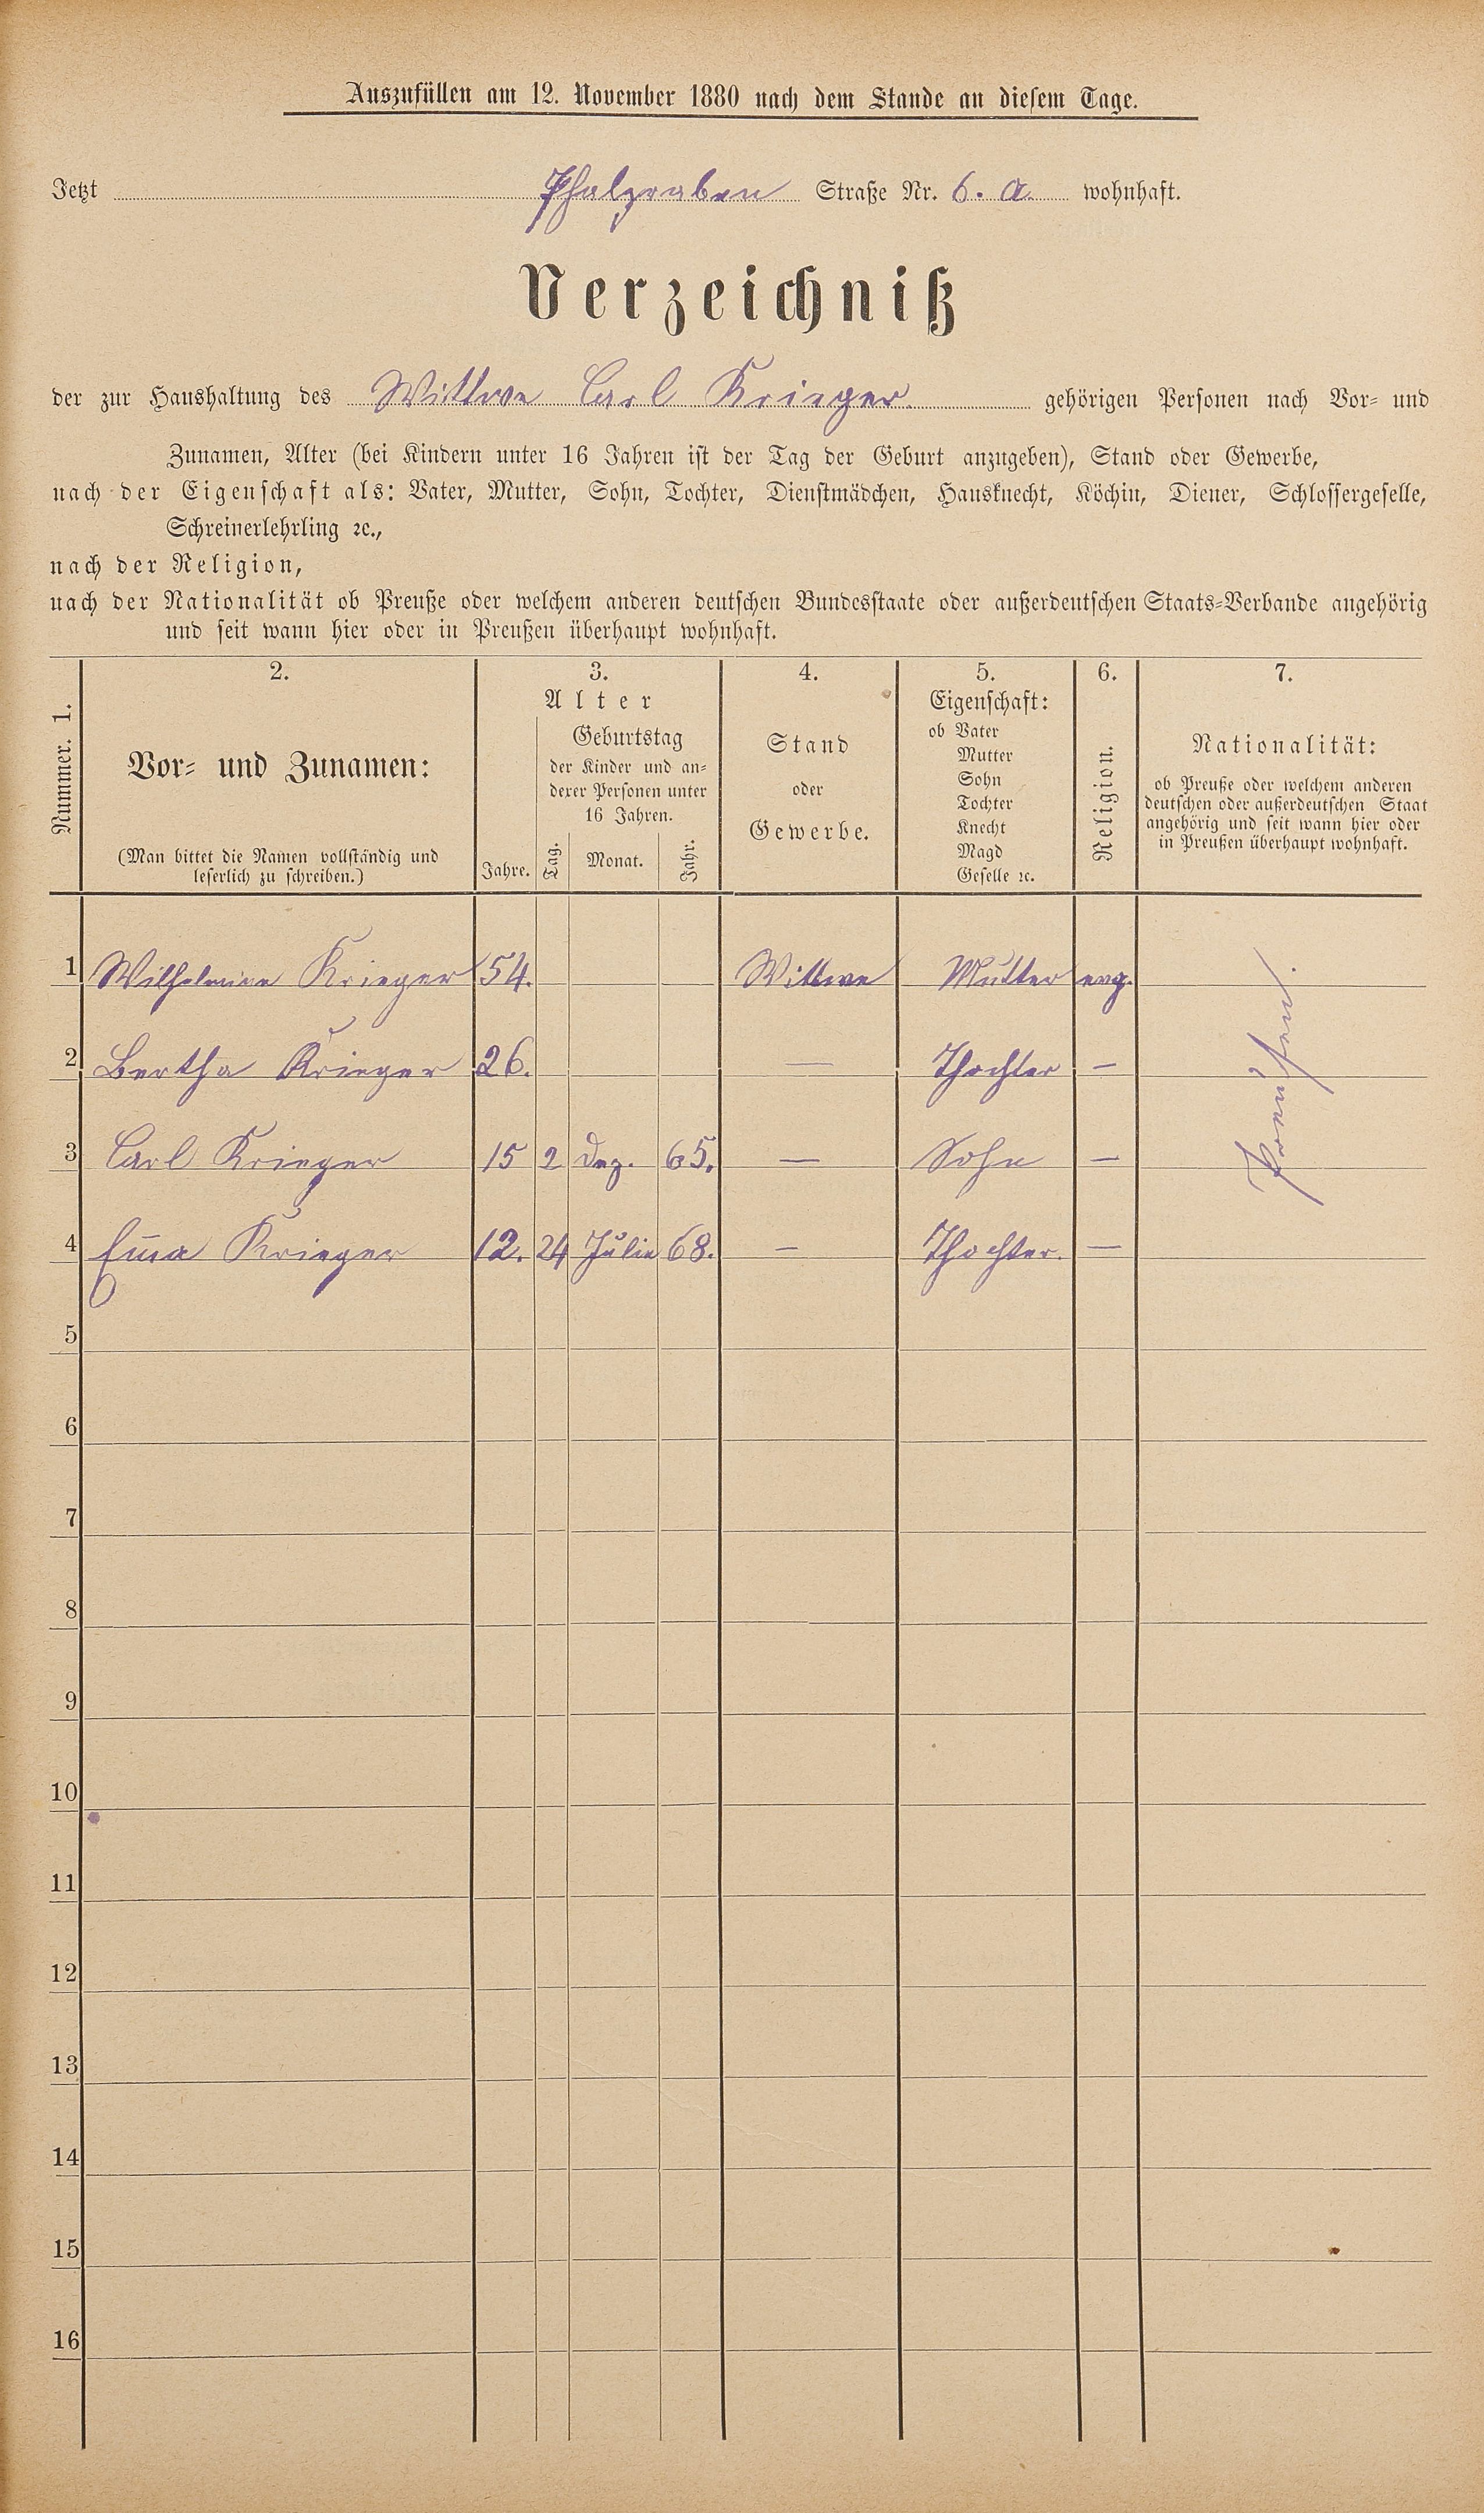 Auszufüllen am 12. November 1880 nach dem Stande an diesem Tage.
Jetzt Pfalzgraben Straße Nr. 6. a. wohnhaft.
Verzeichniß
der zur Haushaltung des Wittwe Carl Krieger. gehörigen Personen nach Vor- und
Zunamen, Alter (bei Kindern unter 16 Jahren ist der Tag der Geburt anzugeben), Stand oder Gewerbe,
nach der Eigenschaft als: Vater, Mutter, Sohn, Tochter, Dienstmädchen, Hausknecht, Köchin, Diener, Schlossergeselle,
Schreinerlehrling ꝛc.,
nach der Religion,
nach der Nationalität ob Preuße oder welchem anderen deutschen Bundesstaate oder außerdeutschen Staats-Verbande angehörig
und seit wann hier oder in Preußen überhaupt wohnhaft.
Nummer. 1.
2.
Vor- und Zunamen:
(Man bittet die Namen vollständig und
leserlich zu schreiben.)
3.
Alter
Jahre.
Geburtstag
der Kinder und an-
derer Personen unter
16 Jahren.
Tag. Monat. Jahr.
4.
Stand
oder
Gewerbe.
5.
Eigenschaft:
ob Vater
Mutter
Sohn
Tochter
Knecht
Magd
Geselle ꝛc.
6.
Religion.
7.
Nationalität:
ob Preuße oder welchem anderen
deutschen oder außerdeutschen Staat
angehörig und seit wann hier oder
in Preußen überhaupt wohnhaft.
1 Wilhelmine Krieger 54. Wittwe Mutter evg.
2 Bertha Krieger 26. — Thochter —
3 Carl Krieger 15 2 Dez. 65. — Sohn —
4 Em̄a Krieger 12. 24 Julie 68. — Thochter. —
Preußen.
5
6
7
8
9
10
11
12
13
14
15
16